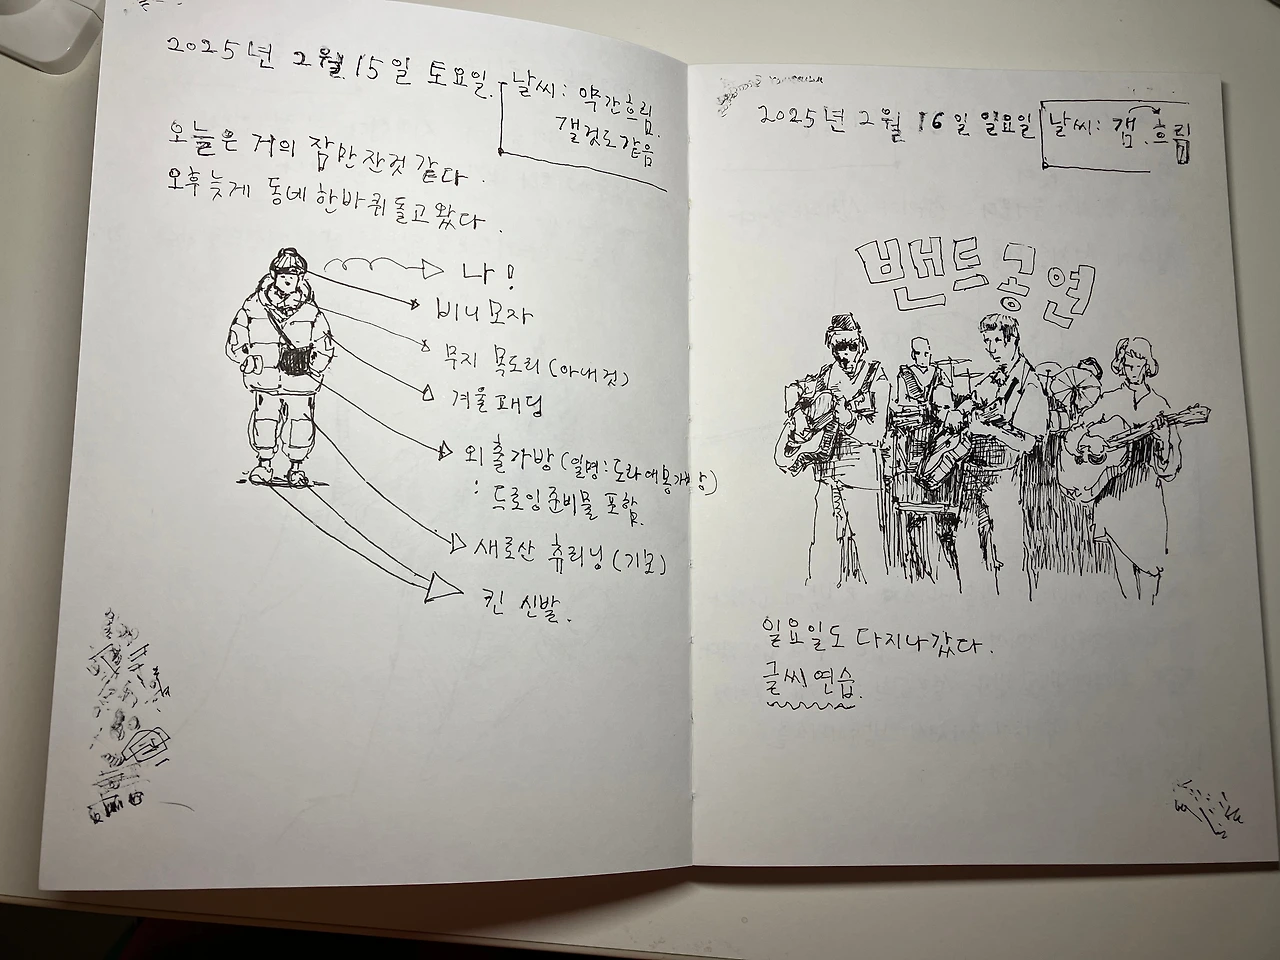 2025년 2월 15일 토요일.
날씨: 약간흐림.
갤것도같음
오늘은 거의 잠만잔것 같다.
오후늦게 동네한바퀴돌고왔다.
나!
비니모자
무지 목도리(아내것)
겨울패딩
외출가방(일명:도라에몽가방)
: 드로잉준비물 포함.
새로산 츄리닝(기모)
킨 신발.
2025년 2월 16일 일요일
날씨: 갬. 흐림
밴드공연
일요일도 다지나갔다.
글씨연습.